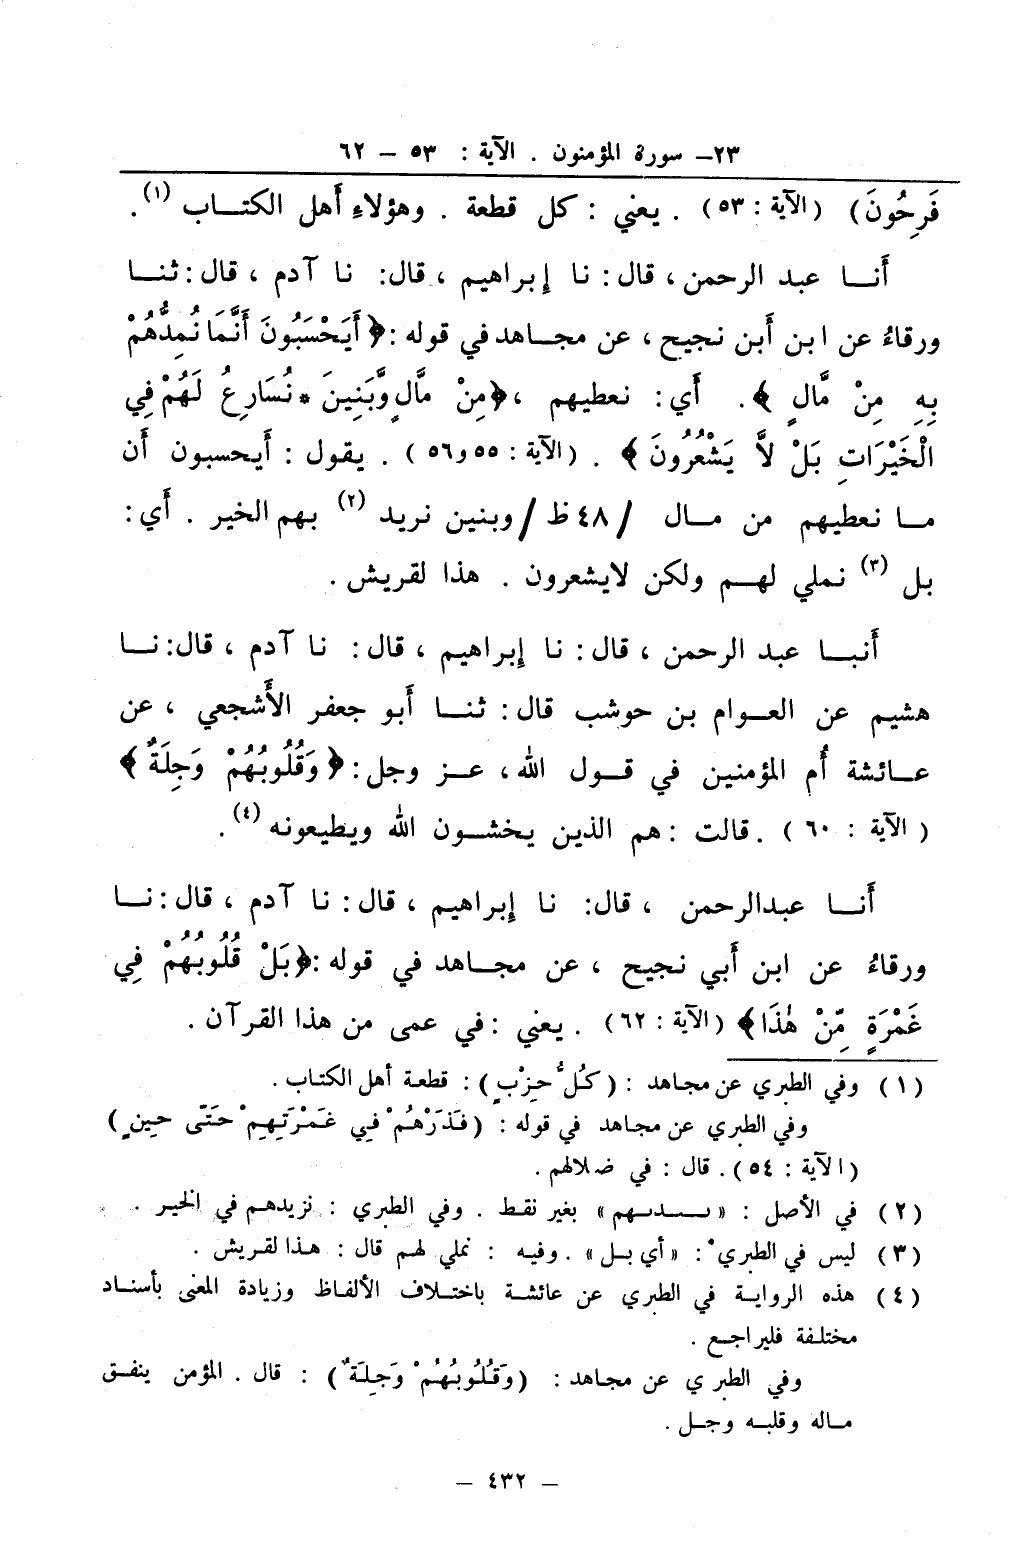 ٢٣– سورة المؤمنون . الآية : ٥٣ – ٦٢
فَرِحُونَ) (الآية : ٥٣) . يعني : كل قطعة . وهؤلاء أهل الكتاب (١).
أنا عبد الرحمن ، قال : نا إبراهيم ، قال: نا آدم ، قال : ثنا
ورقاءُ عن ابن أبن نجيح ، عن مجاهد في قوله : ﴿أَيَحْسَبُونَ أَنَّمَا نُمِدُّهُمْ
بِهِ مِنْ مَّالٍ ﴾. أي : نعطيهم ، ﴿مِنْ مَّالٍ وَّبَنِينَ * نُسَارِعُ لَهُمْ فِي
الْخَيْرَاتِ بَلْ لاَّ يَشْعُرُونَ﴾ . (الآية : ٥٥ و٥٦ ) . يقول : أيحسبون أن
ما نعطيهم من مال /٤٨ظ/ وبنين نريد (٢) بهم الخير . أي :
بل (٣) نملي لهم ولكن لايشعرون . هذا لقريش .
أنبا عبد الرحمن ، قال : نا إبراهيم ، قال : نا آدم ، قال: نا
هشيم عن العوام بن حوشب قال : ثنا أبو جعفر الأشجعي ، عن
عائشة أُم المؤمنين في قول الله ، عز وجل : ﴿ وَقُلُوبُهُمْ وَجِلَةٌ ﴾
( الآية : ٦٠ ) . قالت : هم الذين يخشون الله ويطيعونه (٤) .
أنا عبدالرحمن ، قال: نا إبراهيم ، قال : نا آدم ، قال : نا
ورقاءُ عن ابن أبي نجيح ، عن مجاهد في قوله : ﴿بَلْ قُلُوبُهُمْ فِي
غَمْرَةٍ مِّنْ هٰذَا﴾ (الآية : ٦٢) . يعني : في عمى من هذا القرآن .
(١) وفي الطبري عن مجاهد : (كُلُّ حِزْبٍ) : قطعة أهل الكتاب .
وفي الطبري عن مجاهد في قوله : (فَذَرْهُمْ فِي غَمْرَتِهِمْ حَتّى حِينٍ)
(الآية : ٥٤) . قال : في ضلالهم .
(٢) في الأصل : « بغير نقط . وفي الطبري : نزيدهم في الخير .
(٣) ليس في الطبري : «أي بل» . وفيه : نملي لهم قال : هذا لقريش .
(٤) هذه الرواية في الطبري عن عائشة باختلاف الألفاظ وزيادة المعنى بأسناد
مختلفة فليراجع .
وفي الطبري عن مجاهد : (وَقُلُوبُهُمْ وَجِلَةٌ) : قال . المؤمن ينفق
ماله وقلبه وجل .
– ٤٣٢ –